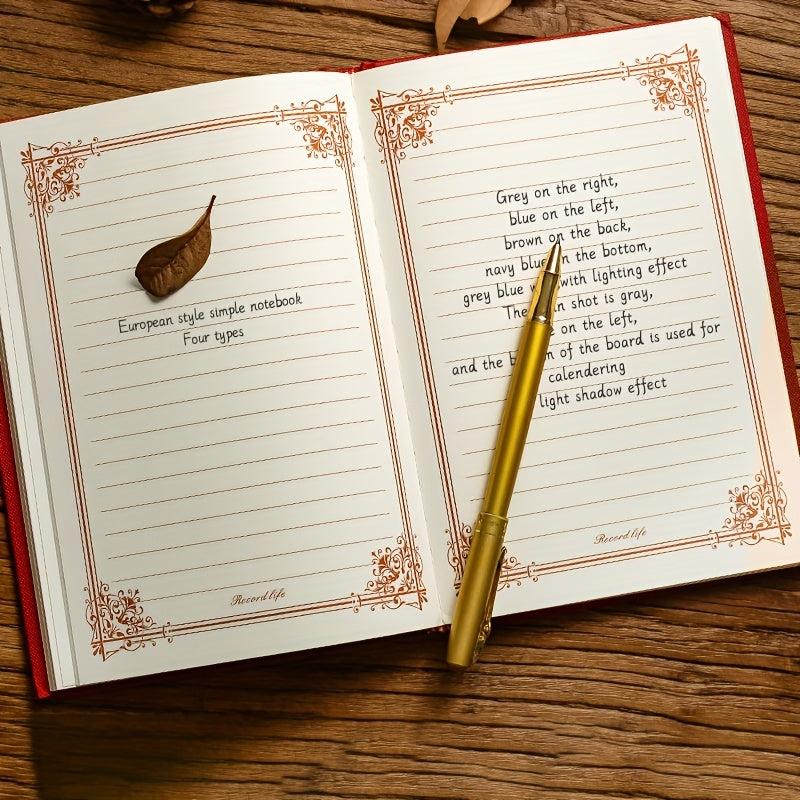 European style simple notebook
Four types
Record life
Grey on the right,
blue on the left,
brown on the back,
navy blue the bottom,
grey blue with lighting effect
The shot is gray,
on the left,
and the of the board is used for
calendering
light shadow effect
Record life